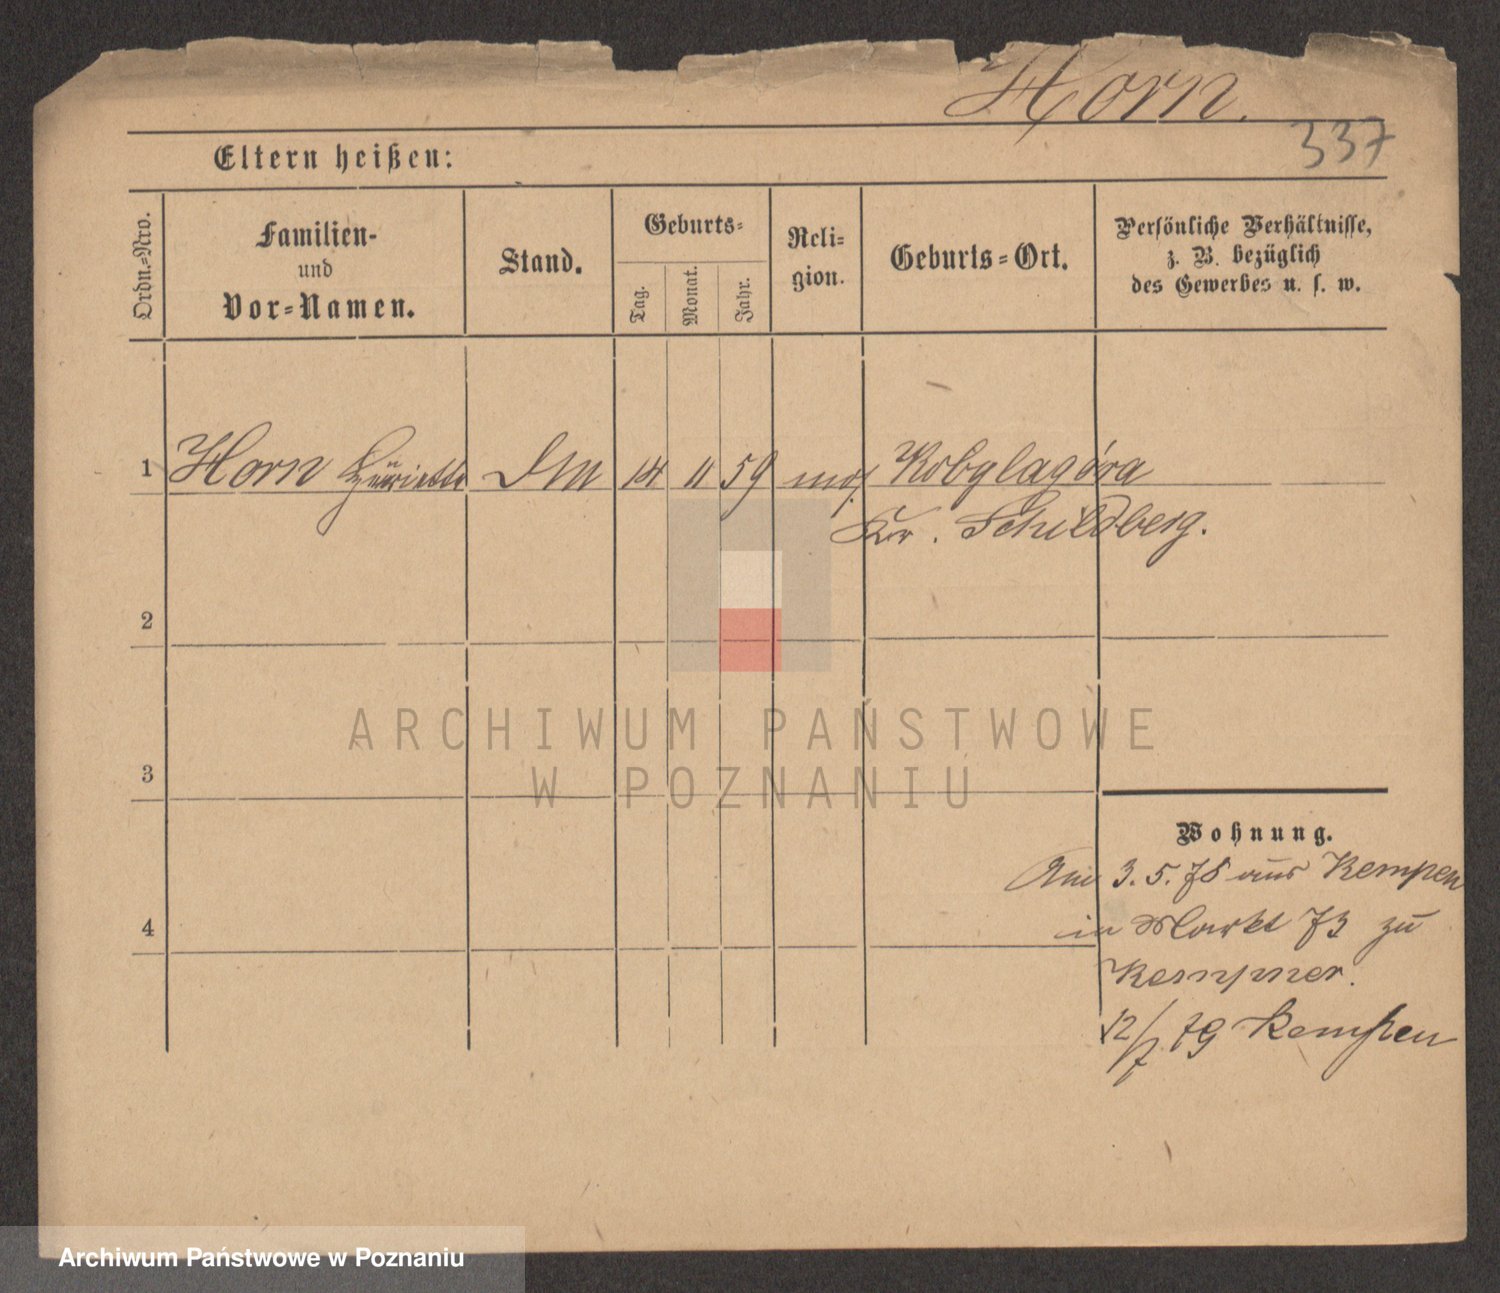 Horn.
337
Eltern heißen:
Ordn.-Nro.
Familien-
und
Vor-Namen.
Stand.
Geburts-
Tag.
Monat.
Jahr.
Reli-
gion.
Geburts-Ort.
Persönliche Verhältnisse,
z. B. bezüglich
des Gewerbes u. s. w.
1 Horn 14 11 59 mos Kobylagóra
Kr. Schildberg.
2
3
4
Wohnung.
Am 3.5.78 aus Kempen
in Markt 73 zu
Kempner.
12/7 79 Kempen
ARCHIWUM PAŃSTWOWE
W POZNANIU
Archiwum Państwowe w Poznaniu